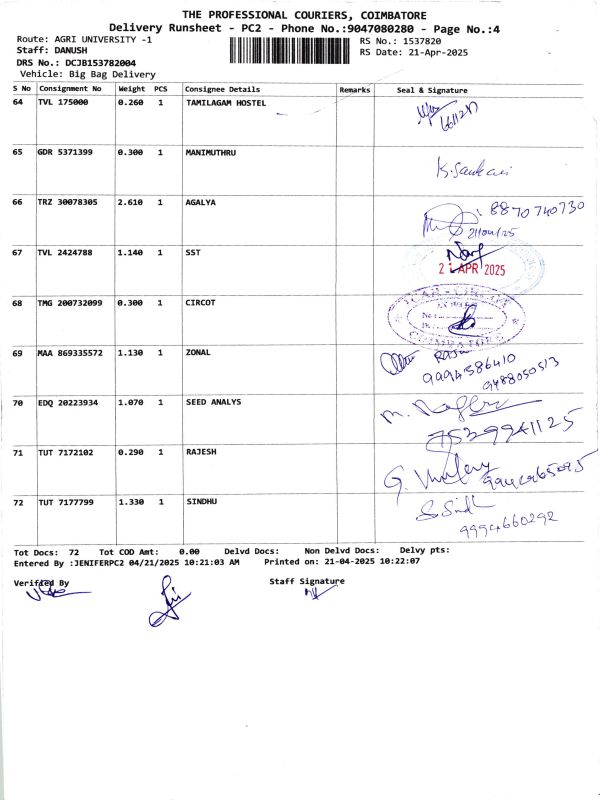 THE PROFESSIONAL COURIERS, COIMBATORE
Delivery Runsheet - PC2 - Phone No.:9047080280 - Page No.:4
Route: AGRI UNIVERSITY -1
RS No.: 1537820
Staff: DANUSH
RS Date: 21-Apr-2025
DRS No.: DCJB153782004
Vehicle: Big Bag Delivery
S No Consignment No Weight PCS Consignee Details Remarks Seal & Signature
64 TVL 175000 0.260 1 TAMILAGAM HOSTEL
65 GDR 5371399 0.300 1 MANIMUTHRU
K. Sankari
66 TRZ 30078305 2.610 1 AGALYA
8870740730
21/04/25
67 TVL 2424788 1.140 1 SST
21 APR 2025
68 TMG 200732099 0.300 1 CIRCOT
COIMBATORE
69 MAA 869335572 1.130 1 ZONAL
9994586410
9488050513
70 EDQ 20223934 1.070 1 SEED ANALYS
7539941125
71 TUT 7172102 0.290 1 RAJESH
72 TUT 7177799 1.330 1 SINDHU
S Sindh
9994660292
Tot Docs: 72 Tot COD Amt: 0.00 Delvd Docs: Non Delvd Docs: Delvy pts:
Entered By :JENIFERPC2 04/21/2025 10:21:03 AM Printed on: 21-04-2025 10:22:07
Verified By
Staff Signature